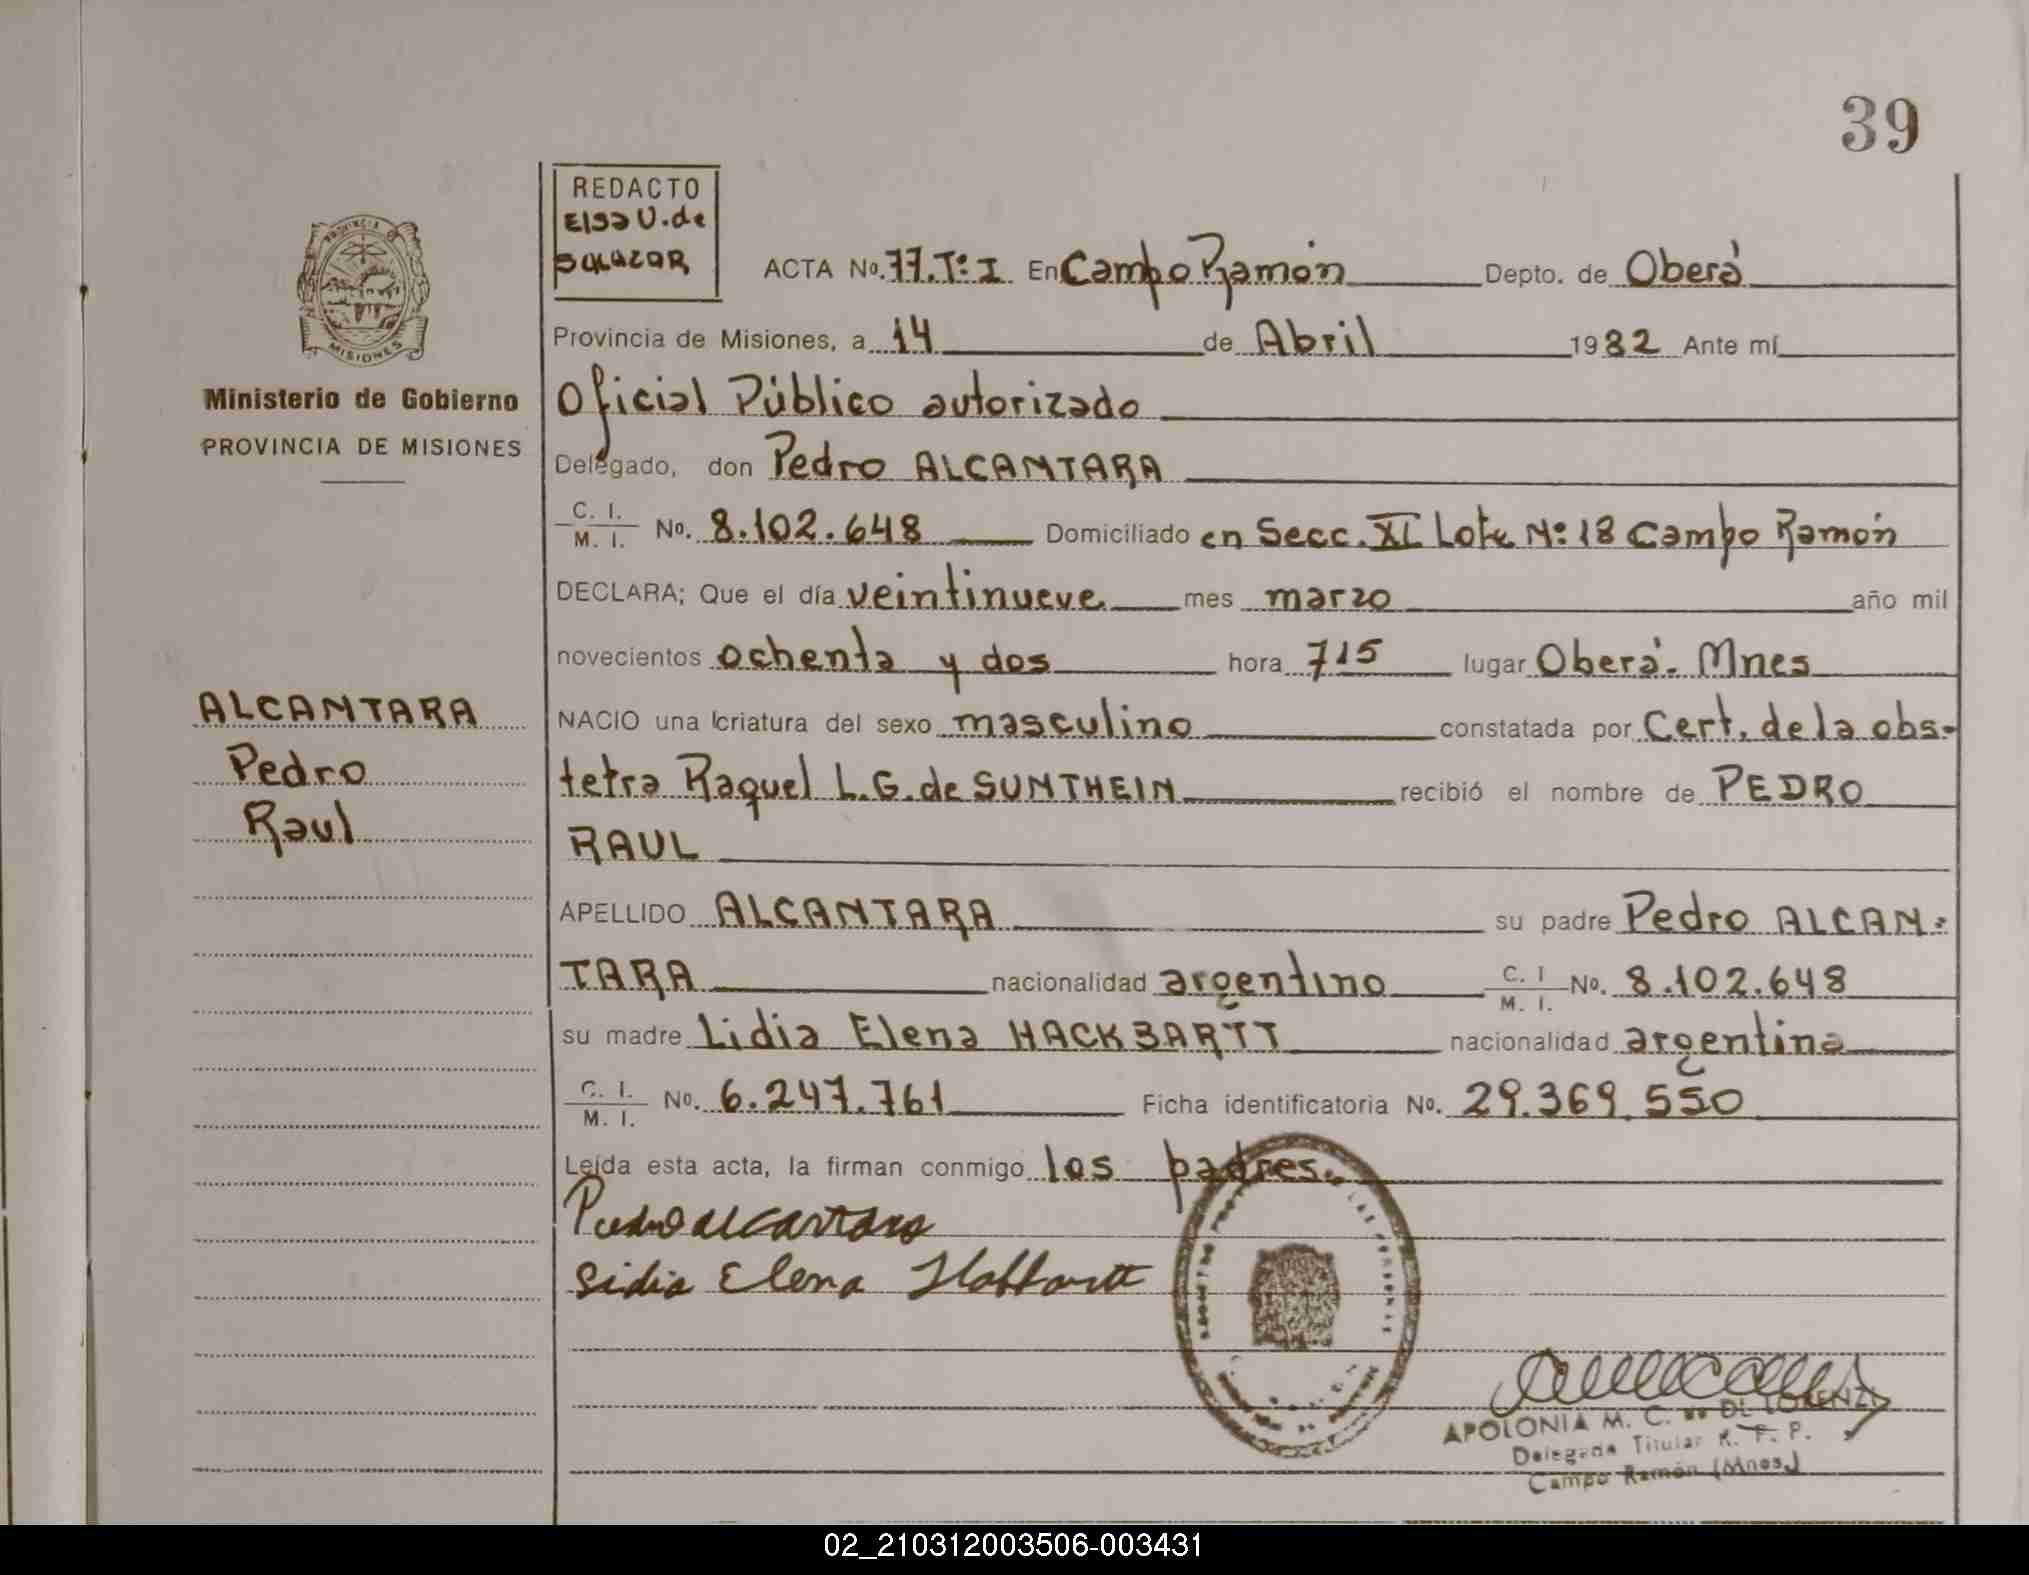 39
REDACTO
Elsa U. de
SALAZAR
ACTA No. 77. Tº I En Campo Ramón Depto. de Oberá
Provincia de Misiones, a 14 de Abril 1982 Ante mí
Oficial Público autorizado
Delegado, don Pedro ALCANTARA
C. I. / M. I. No. 8.102.648 Domiciliado en Secc. XI Lote Nº 18 Campo Ramón
DECLARA; Que el día veintinueve mes marzo año mil
novecientos ochenta y dos hora 7 15 lugar Oberá. Mnes
NACIO una criatura del sexo masculino constatada por Cert. de la obs-
tetra Raquel L. G. de SUNTHEIN recibió el nombre de PEDRO
RAUL
APELLIDO ALCANTARA su padre Pedro ALCAN-
TARA nacionalidad argentino C. I / M. I. No. 8.102.648
su madre Lidia Elena HACKBARTT nacionalidad argentina
C. I. / M. I. No. 6.247.761 Ficha identificatoria No. 29.369.550
Leída esta acta, la firman conmigo los padres.
Pedro alcantara
Lidia Elena
APOLONIA M. C. de DE LORENZI
Delegada Titular R. P. P.
Campo Ramón (Mnes)
PROVINCIA DE
MISIONES
Ministerio de Gobierno
PROVINCIA DE MISIONES
ALCANTARA
Pedro
Raul
02_210312003506-003431